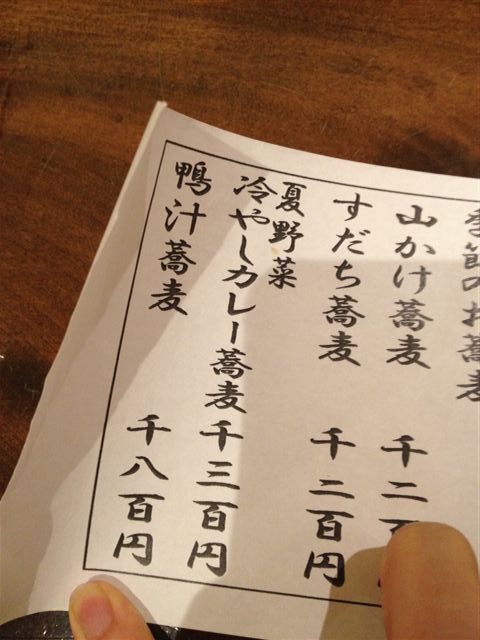 季節のお蕎麦
山かけ蕎麦 千二百
すだち蕎麦 千二百円
夏野菜
冷やしカレー蕎麦 千三百円
鴨汁蕎麦 千八百円